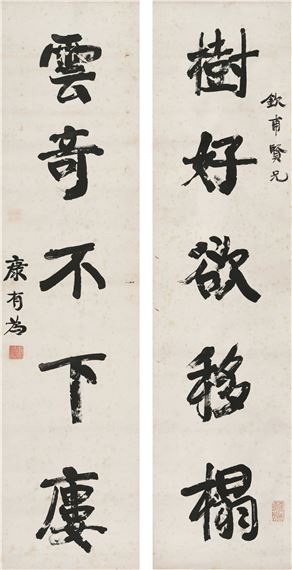 欽甫賢兄
樹好欲移榻
雲奇不下廔
康有為